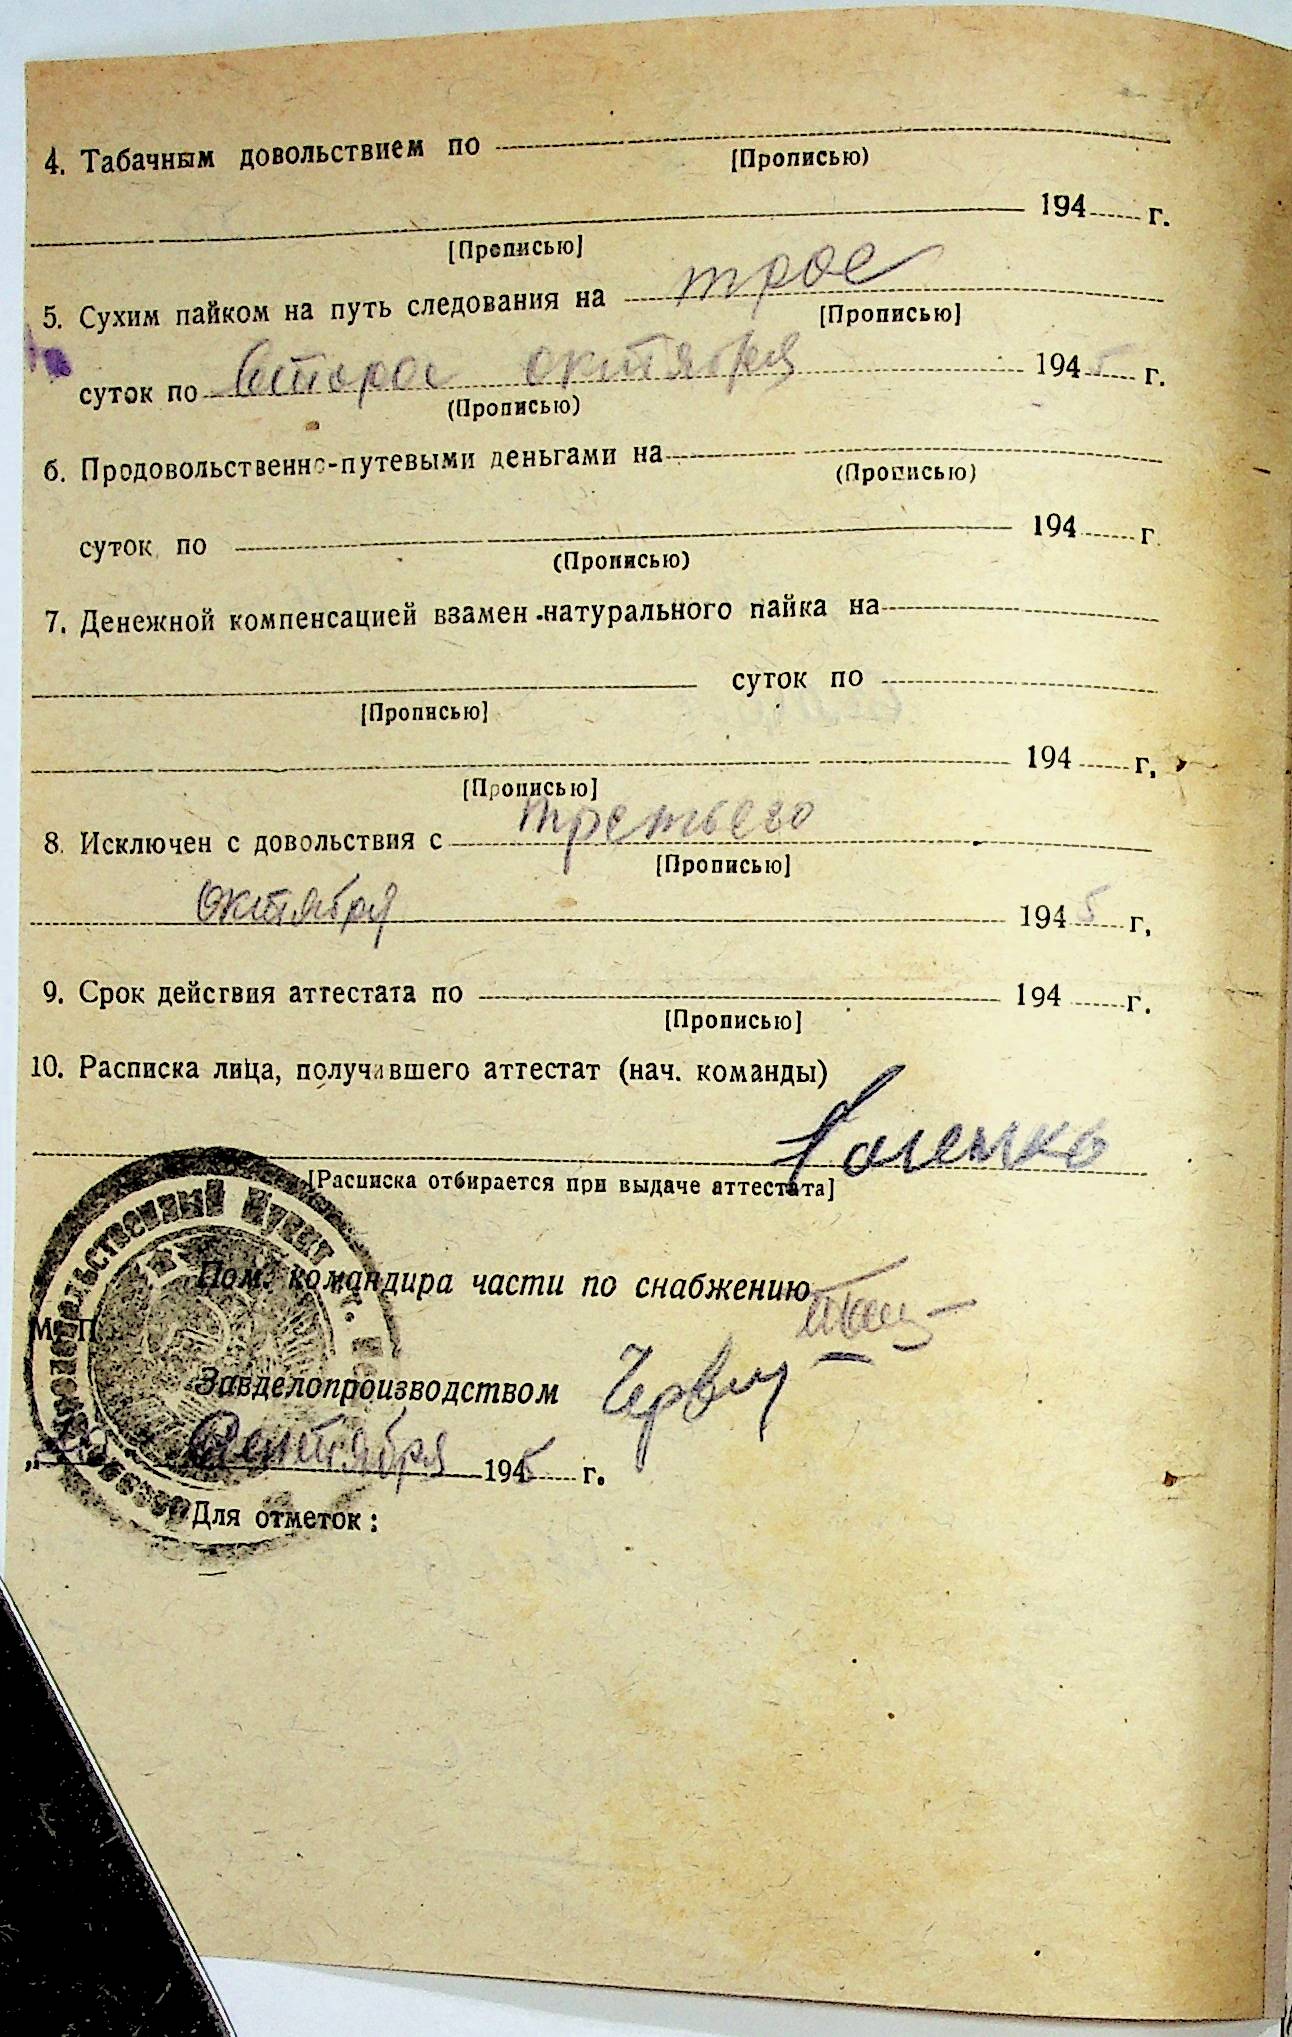 4. Табачным довольствием по
[Прописью)
194 г.
[Прописью]
5. Сухим пайком на путь следования на трое
[Прописью]
суток по второе октября 1945 г.
(Прописью)
6. Продовольственно-путевыми деньгами на
(Прописью)
суток по 194 г
(Прописью)
7. Денежной компенсацией взамен натурального пайка на
суток по
[Прописью]
194 г.
[Прописью]
8. Исключен с довольствия с третьего
[Прописью]
октября 1945 г.
9. Срок действия аттестата по 194 г.
[Прописью]
10. Расписка лица, получившего аттестат (нач. команды)
[Расписка отбирается при выдаче аттестата]
Пом. командира части по снабжению
М. П.
Завделопроизводством
сентября 1945 г.
Для отметок: